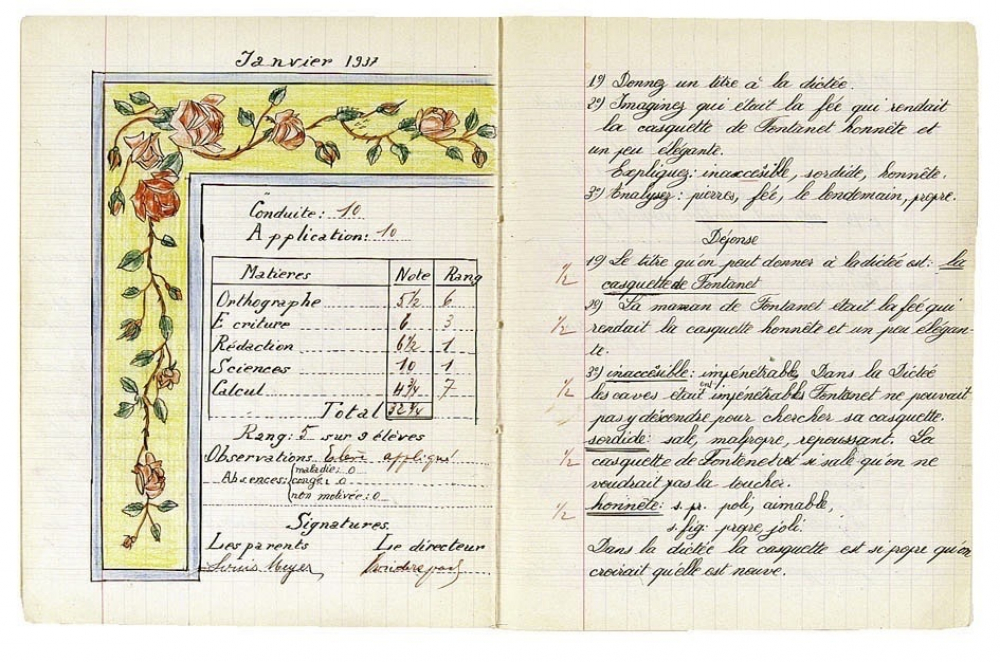 Janvier 1937
Conduite: 10
Application: 10
Matières Note Rang
Orthographe 5½ 6
Ecriture 6 3
Rédaction 6½ 1
Sciences 10 1
Calcul 4¾ 7
Total 32¾
Rang: 5 sur 9 élèves
Observations Elève appliqué
Absences: maladie: 0
congé: 0
non motivée: 0
Signatures
Les parents Le directeur
Louis Meyer
1º) Donnez un titre à la dictée.
2º) Imaginez qui était la fée qui rendait
la casquette de Fontanet honnête et
un peu élégante.
Expliquez: inaccessible, sordide, honnête.
3º) Analysez: pierres, fée, le lendemain, propre.
Réponse
½ 1º) Le titre qu'on peut donner à la dictée est: la
casquette de Fontanet
½ 2º) La maman de Fontanet était la fée qui
rendait la casquette honnête et un peu élégan-
te.
3º) inaccésible: impénétrable. Dans la Dictée
½ les caves était ent impénétrables Fontenet ne pouvait
pas y descendre pour chercher sa casquette.
sordide: sale, malpropre, repoussant. La
½ casquette de Fontenet est si sale qu'on ne
voudrait pas la toucher.
½ honnête: s. pr. poli, aimable,
s. fig: propre, joli.
Dans la dictée la casquette est si propre qu'on
croirait qu'elle est neuve.